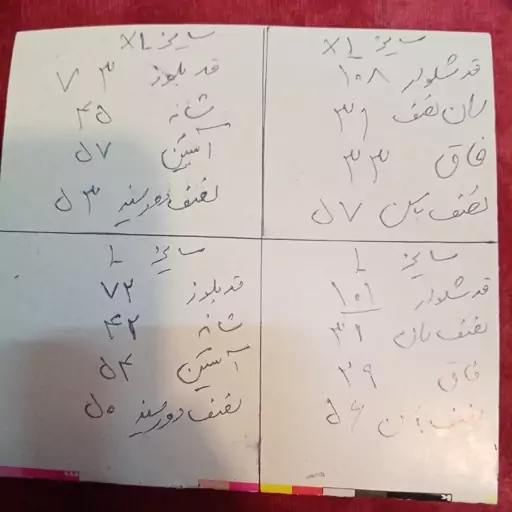 سایز XL
قد شلوار ۱۰۸
ران نصف ۳۱
فاق ۳۳
نصف باسن ۵۷
سایز XL
قد بلوز ۷۳
شانه ۴۵
آستین ۵۷
نصف دور سینه ۵۳
سایز L
قد شلوار ۱۰۱
نصف ران ۳۱
فاق ۲۹
نصف باسن ۵۶
سایز L
قد بلوز ۷۲
شانه ۴۲
آستین ۵۴
نصف دور سینه ۵۰